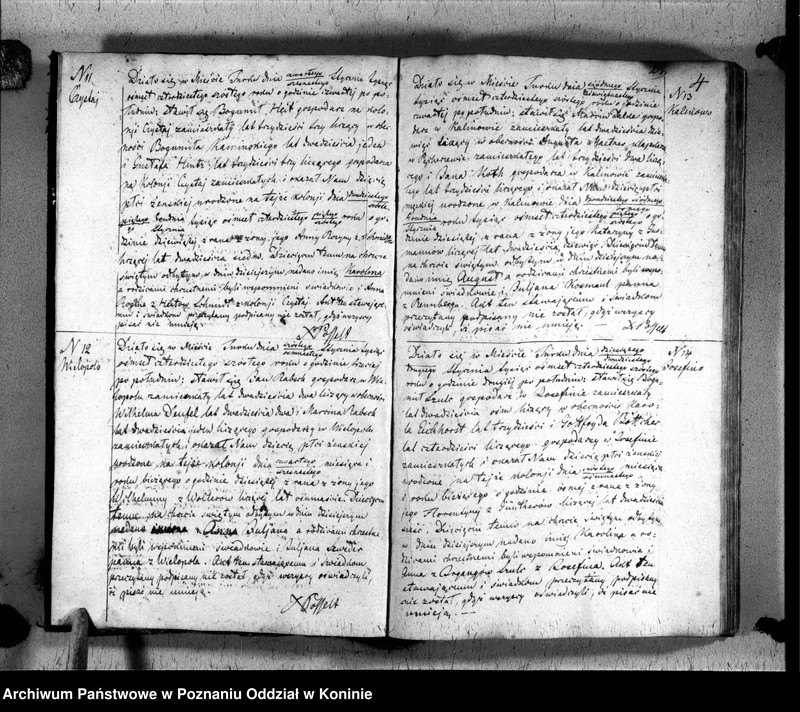 N 11.
Czyste
Działo się w Mieście Turku dnia czwartego Stycznia tysiąc
szesnastego
ośmset czterdziestego szóstego roku o godzinie czwartej po po
łudniu, stawił się Bogumił Heyt gospodarz na kolo
nii Czystej zamieszkały lat trzydzieści trzy liczący w obe
cności Bogumiła Kamińskiego lat dwadzieścia jeden
i Gustafa Hintz lat trzydzieści trzy liczącego gospodarzy
na kolonji Czystej zamieszkałych i okazał Nam dziecię
płci żeńskiej urodzone na tejże kolonji dnia
piątego Grudnia tysiąc ośmset czterdziestego piątego roku o go
Stycznia szóstego
dzinie dziewiątej z rana z żony jego Anny Rozyny z
liczącej lat dwadzieścia siedm. Dziecięciu temu na chrzcie
świętym odbytym w dniu dzisiejszym nadano imię Karolina
a rodzicami chrzestnemi byli wspomnieni świadkowie i Anna
z kolonji Czystej. Akt ten stawające
mu i świadkom przeczytany podpisany nie został, gdyż wszyscy
pisać nie umieją.
X Posselt
N 12
Wielopole
Działo się w Mieście Turku dnia szóstego Stycznia tysiąc
ośmnastego
ośmset czterdziestego szóstego roku o godzinie trzeciej
po południu, stawił się Jan Rabsch gospodarz w Wie
lopolu zamieszkały lat dwadzieścia dwa liczący w obecności
Wilhelma Deufel lat dwadzieścia dwa i Marcina Rabsch
lat dwadzieścia jeden liczącego gospodarzy w Wielopolu
zamieszkałych i okazał Nam dziecię płci żeńskiej
urodzone na tejże kolonji dnia czwartego miesiąca i
szesnastego
roku bieżącego o godzinie dziesiątej z rana z żony jego
Wilhelminy z Wölterów liczącej lat ośmnaście Dziecięciu
temu na chrzcie świętym odbytym w dniu dzisiejszym
nadano Anna Juljana a rodzicami chrzestne
mi byli wspomnieni świadkowie i Juljana
panna z Wielopola. Akt ten stawającemu i świadkom
przeczytany podpisany nie został, gdyż wszyscy oświadczyli,
że pisać nie umieją.
X Posselt
4
N 13
Kalinowo
Działo się w Mieście Turku dnia siódmego Stycznia
dziewiętnastego
tysiąc ośmset czterdziestego szóstego roku o godzinie
czwartej po południu, stawił się gospo
darz w Kalinowie zamieszkały lat dwadzieścia dzie
więć liczący w obecności Augusta
w zamieszkałego lat trzydzieści dwa liczą
cego i Jana Koth gospodarza w Kalinowie zamieszka
łego lat trzydzieści liczącego i okazał Nam dziecię płci
męzkiej urodzone w Kalinowie dnia dwudziestego siódmego
Grudnia roku tysiąc ośmset czterdziestego piątego o go
Stycznia szóstego
dzinie dziesiątej z rana z żony jego Katarzyny z
liczącej lat dwadzieścia dziewięć. Dziecięciu temu
na chrzcie świętym odbytym w dniu dzisiejszym na
dano imię August a rodzicami chrzestnemi byli wspo
mnieni świadkowie i Juljana panna
z Akt ten stawającemu i świadkom
przeczytany podpisany nie został, gdyż wszyscy
oświadczyli, że pisać nie umieją.
X Posselt
N 14
Józefino
Działo się w Mieście Turku dnia dziesiątego
dwudziestego
drugiego Stycznia tysiąc ośmset czterdziestego szóstego
roku o godzinie drugiej po południu, stawił się Bogu
mił Szulc gospodarz w Józefinie zamieszkały
lat dwadzieścia ośm liczący w obecności Karo
la Eichhorst lat trzydzieści i Gottfryda Böttcher
lat czterdzieści liczącego gospodarzy w Józefinie
zamieszkałych i okazał Nam dziecię płci żeńskiej
urodzone na tejże kolonji dnia szóstego miesiąca
ośmnastego
i roku bieżącego o godzinie ósmej z rana z żony
jego Florentyny z Güntherów liczącej lat dwadzieścia
sześć. Dziecięciu temu na chrzcie świętym odbytym
w dniu dzisiejszym nadano imię Karolina a ro
dzicami chrzestnemi byli wspomnieni świadkowie i
Anna z Szulc z Józefina. Akt ten
stawającemu i świadkom przeczytany, podpisany
nie został, gdyż wszyscy oświadczyli, że pisać nie
umieją.
Archiwum Państwowe w Poznaniu Oddział w Koninie